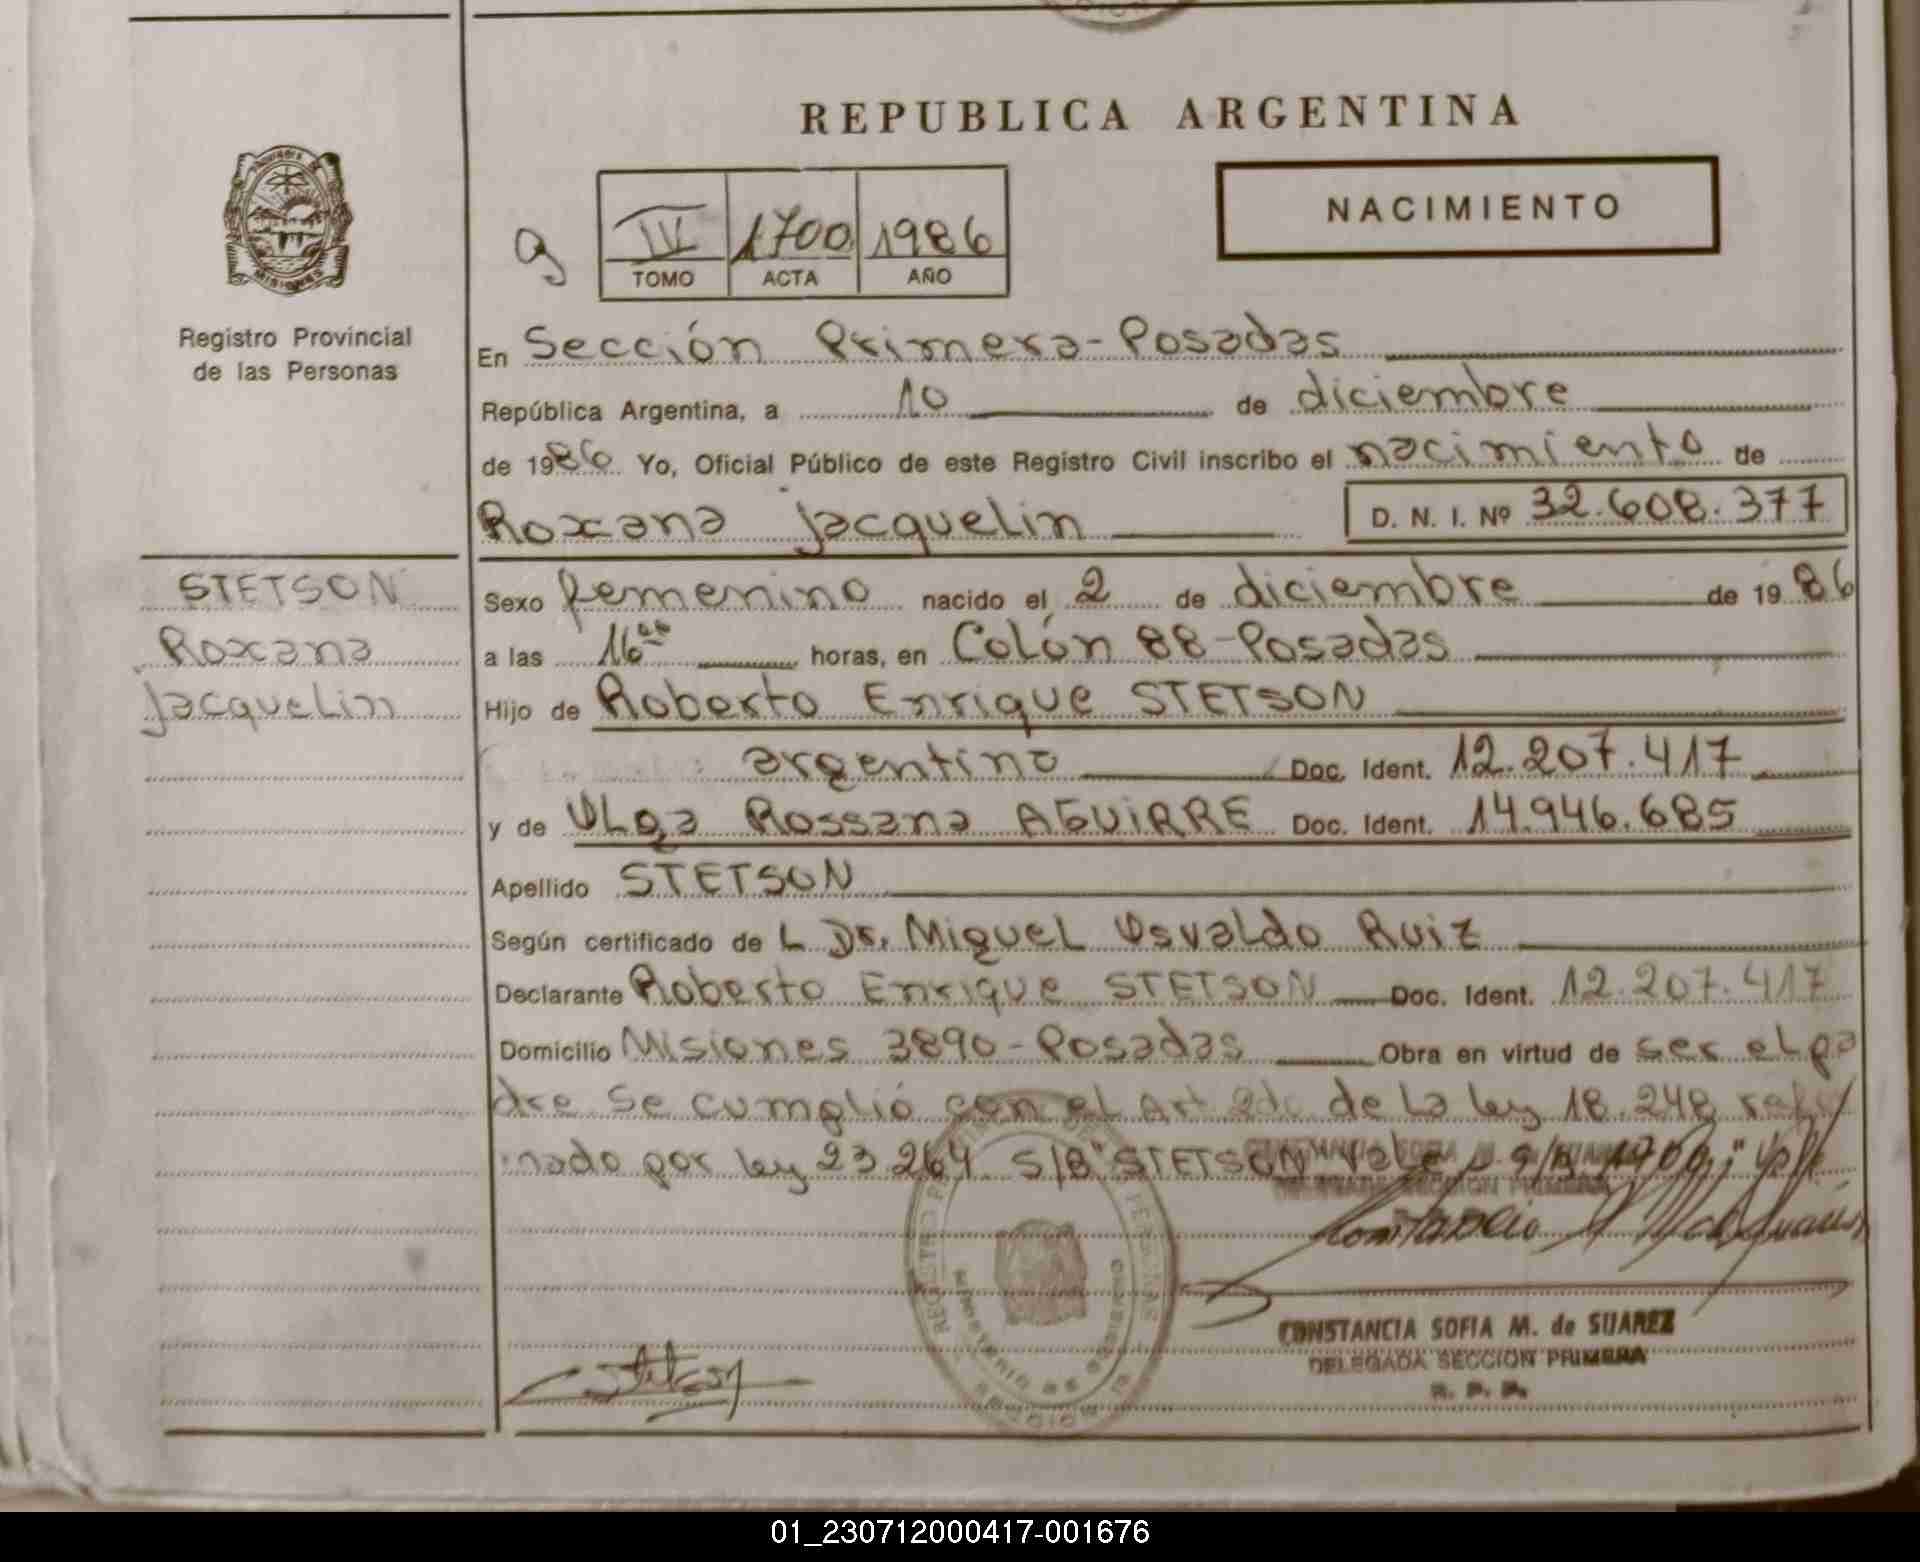 REPUBLICA ARGENTINA
NACIMIENTO
9
IV 1700 1986
TOMO ACTA AÑO
Registro Provincial
de las Personas
En Sección Primera-Posadas
República Argentina, a 10 de diciembre
de 1986 Yo, Oficial Público de este Registro Civil inscribo el nacimiento de
Roxana Jacquelin D. N. I. Nº 32.608.377
STETSON
Roxana
Jacquelin
Sexo femenino nacido el 2 de diciembre de 1986
a las 16 horas, en Colón 88-Posadas
Hijo de Roberto Enrique STETSON
argentino Doc. Ident. 12.207.417
y de Olga Rossana AGUIRRE Doc. Ident. 14.946.685
Apellido STETSON
Según certificado de L Dr. Miguel Osvaldo Ruiz
Declarante Roberto Enrique STETSON Doc. Ident. 12.207.417
Domicilio Misiones 3890-Posadas Obra en virtud de ser el pa
dre Se cumplió con el Art de la ley 18.248
nado por ley 23.264 S/B "STETSON Vale
CONSTANCIA SOFIA M. de SUAREZ
DELEGADA SECCION PRIMERA
R. P. P.
Stetson
01_230712000417-001676